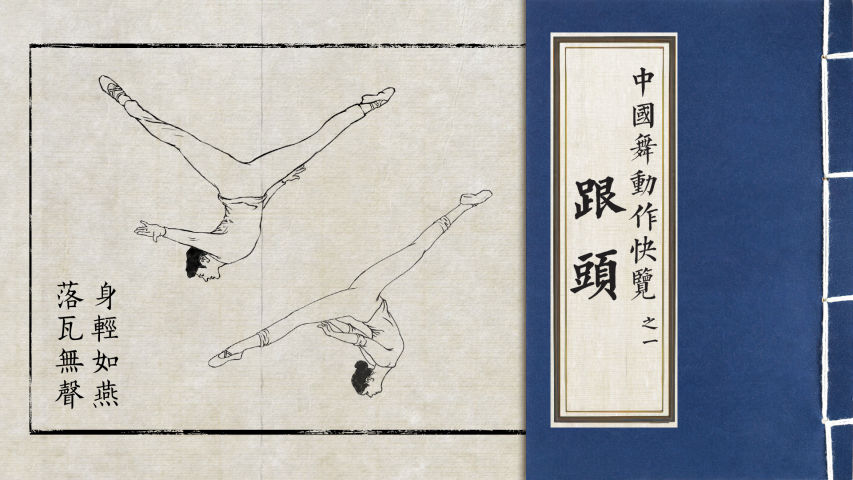 中國舞動作快覽之一
跟頭
身輕如燕
落瓦無聲